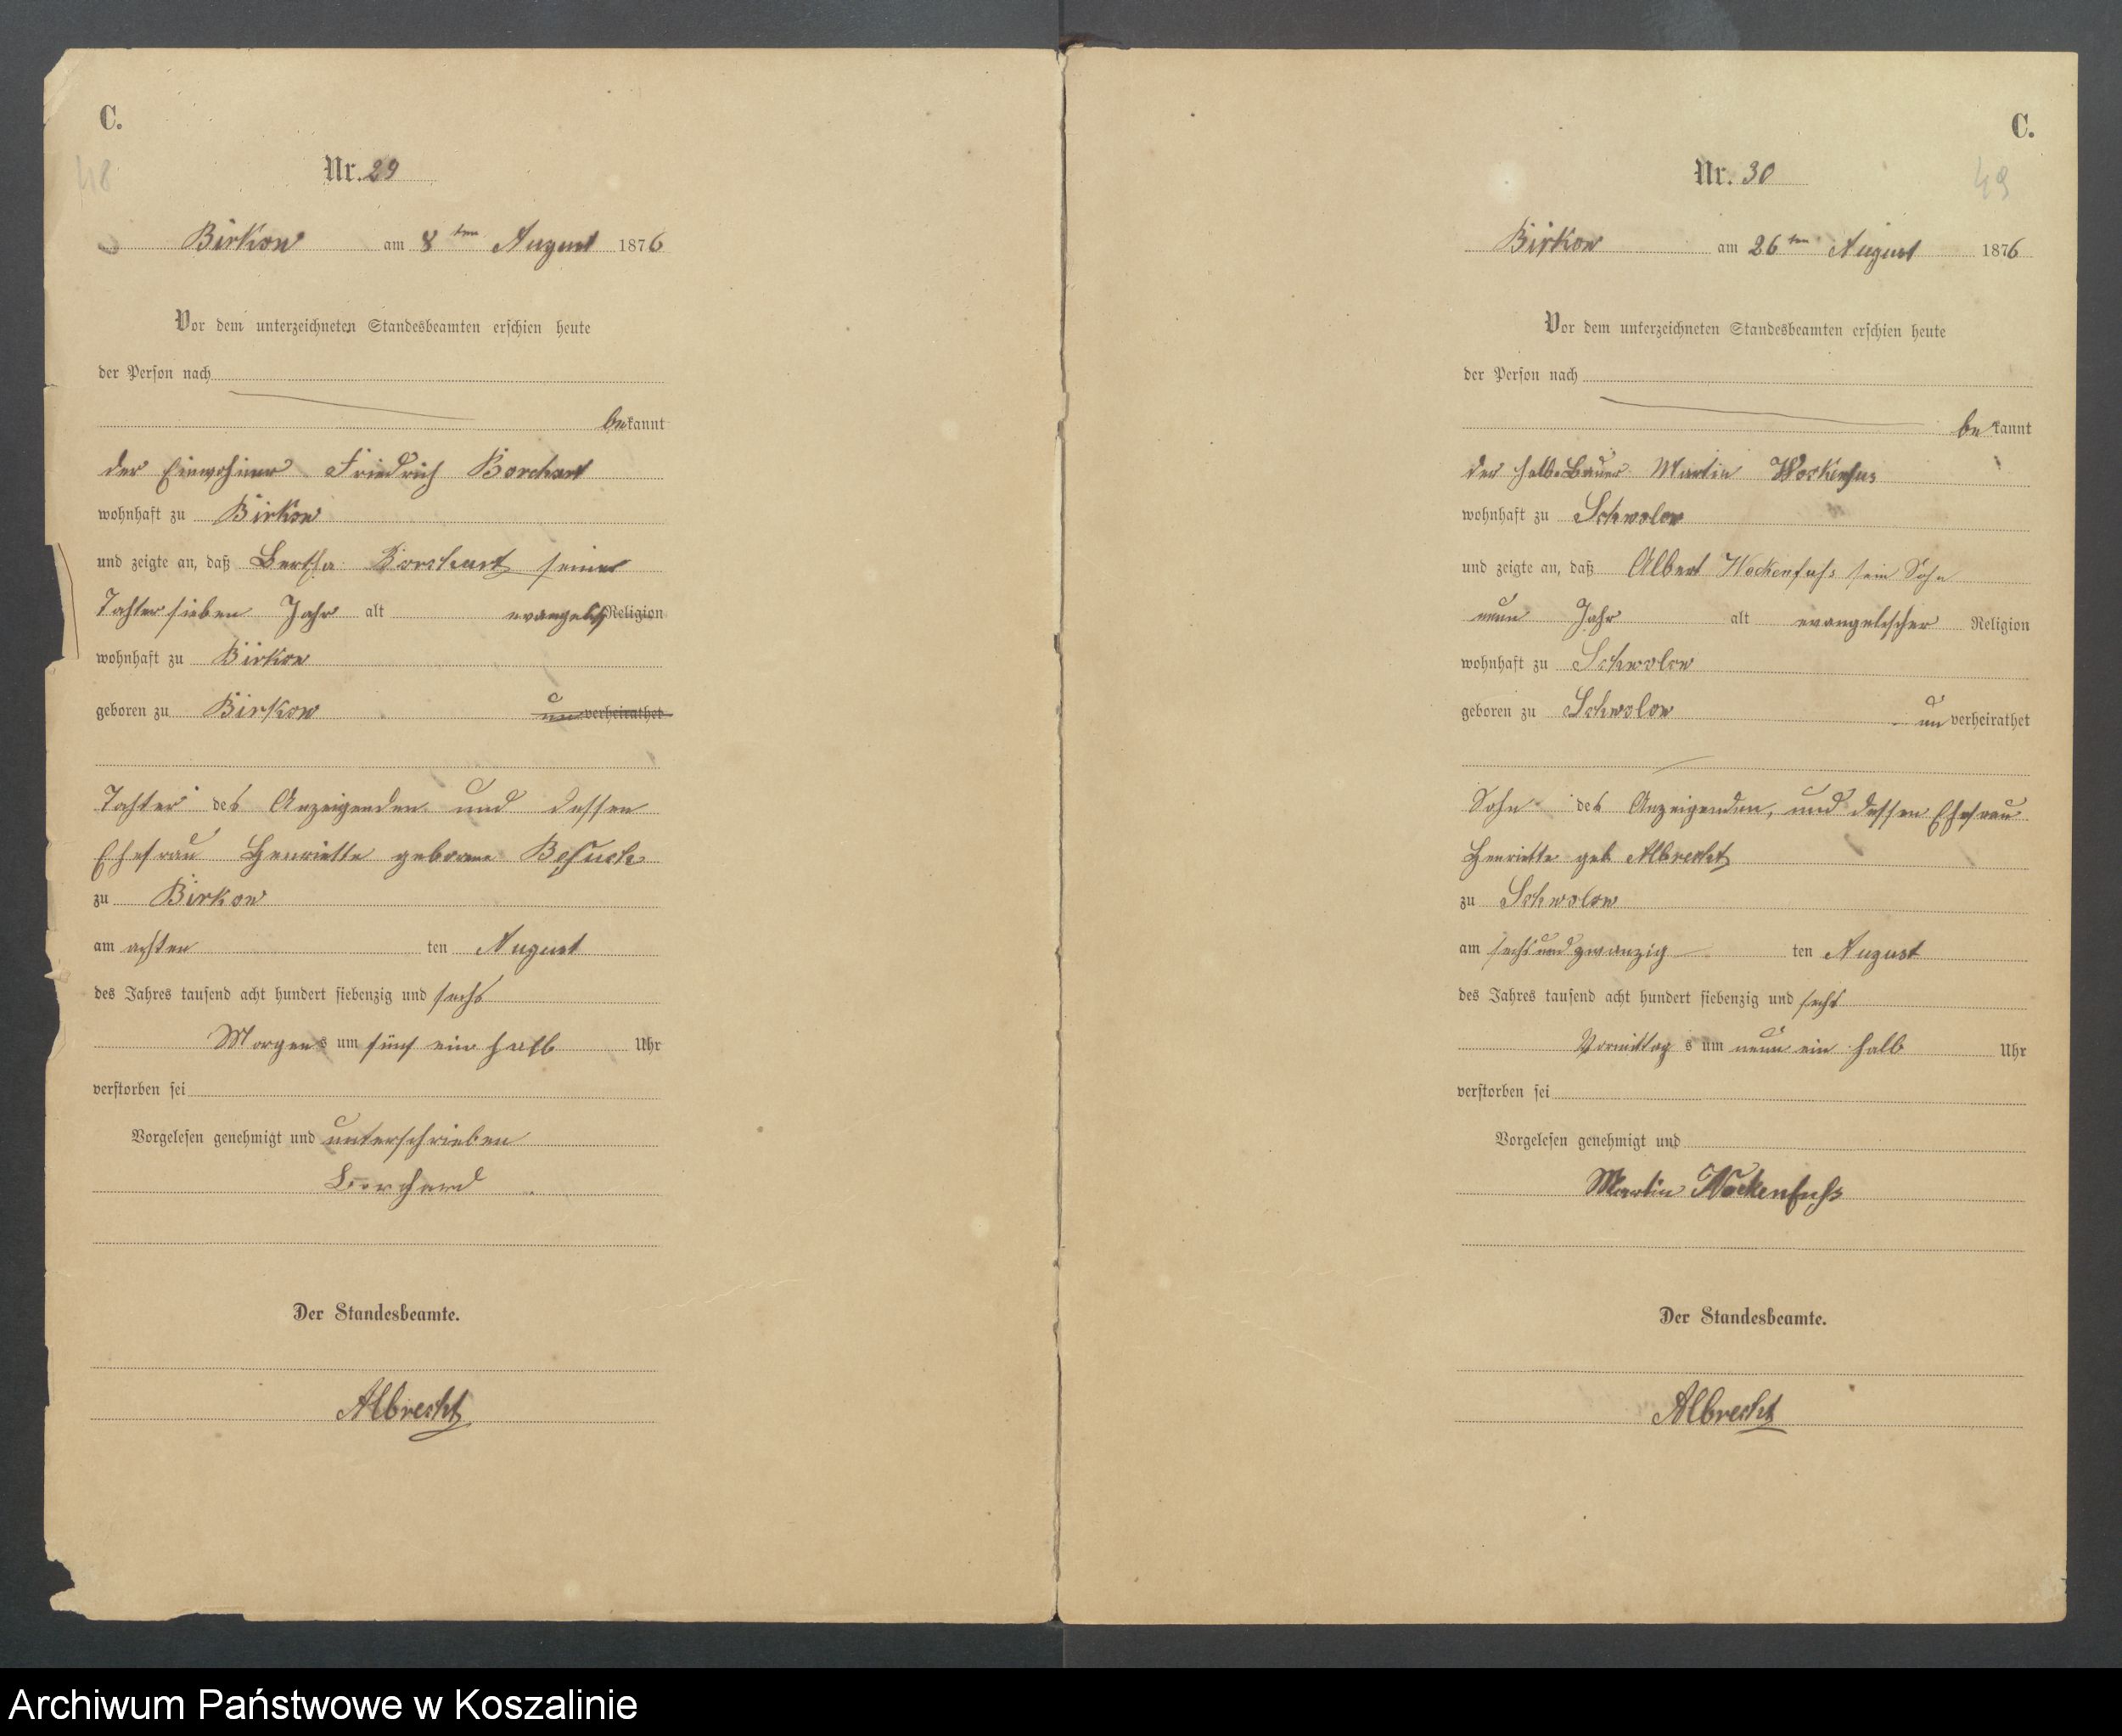 C.
48
Nr. 29
Birkow am 8ten August 1876
Vor dem unterzeichneten Standesbeamten erschien heute
der Person nach
bekannt
der Einwohner Friedrich Borchart
wohnhaft zu Birkow
und zeigte an, daß Bertha Borchart seine
Tochter sieben Jahr alt evangelisch Religion
wohnhaft zu Birkow
geboren zu Birkow unverheirathet
Tochter des Anzeigenden und dessen
Ehefrau Henriette geborene
zu Birkow
am achten ten August
des Jahres tausend acht hundert siebenzig und sechs
Morgens um fünf ein halb Uhr
verstorben sei
Vorgelesen genehmigt und unterschrieben
Borchard
Der Standesbeamte.
Albrecht
C.
49
Nr. 30
Birkow am 26ten August 1876
Vor dem unterzeichneten Standesbeamten erschien heute
der Person nach
bekannt
der halbe Bauer Martin Wockenfus
wohnhaft zu Schwolow
und zeigte an, daß Albert Wockenfuhs sein Sohn
neun Jahr alt evangelischer Religion
wohnhaft zu Schwolow
geboren zu Schwolow unverheirathet
Sohn des Anzeigenden, und dessen Ehefrau
Henriette geb Albrecht
zu Schwolow
am sechs und zwanzig ten August
des Jahres tausend acht hundert siebenzig und sechs
Vormittags um neun ein halb Uhr
verstorben sei
Vorgelesen genehmigt und
Martin Wockenfuhs
Der Standesbeamte.
Albrecht
Archiwum Państwowe w Koszalinie